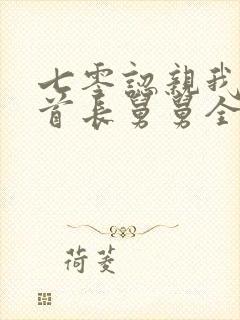 七零認親我
首長舅舅全
荷菱